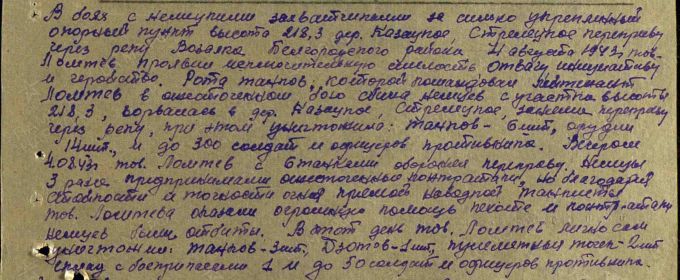 В боях с немецкими захватчиками за сильно укрепленный
опорный пункт высота 218,3 дер. Казацкое, Стрелецкое переправу
через реку Возелка Белгородского района 4 августа 1943, тов.
Лоптев проявил исключительную смелость отвагу инициативу
и геройство. Рота танков, которой командовал лейтенант
Лоптев в ожесточенном бою сбила немцев с участка высоты
218,3, ворвалась в дер. Казацкое, Стрелецкое, заняла переправу
через реку, при этом уничтожила: танков - 6 шт, орудий
14 шт, и до 300 солдат и офицеров противника. Вечером
4.08.43г тов. Лоптев с 6 танками оборонял переправу. Немцы
3 раза предпринимали ожесточенные контратаки но благодаря
стойкости и точности огня прямой наводкой танкисты
тов. Лоптева оказали огромную помощь пехоте и контр-атаки
немцев были отбиты. В этот день тов. Лоптев лично сам
уничтожил: танков - 3 шт, Дзотов - 1 шт, пулеметных точек - 2 шт
склад с боеприпасами 1 и до 50 солдат и офицеров противника.